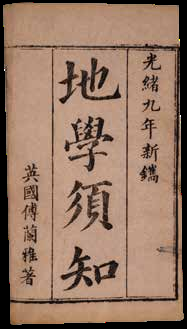 光緒九年新鐫
地學須知
英國傅蘭雅著